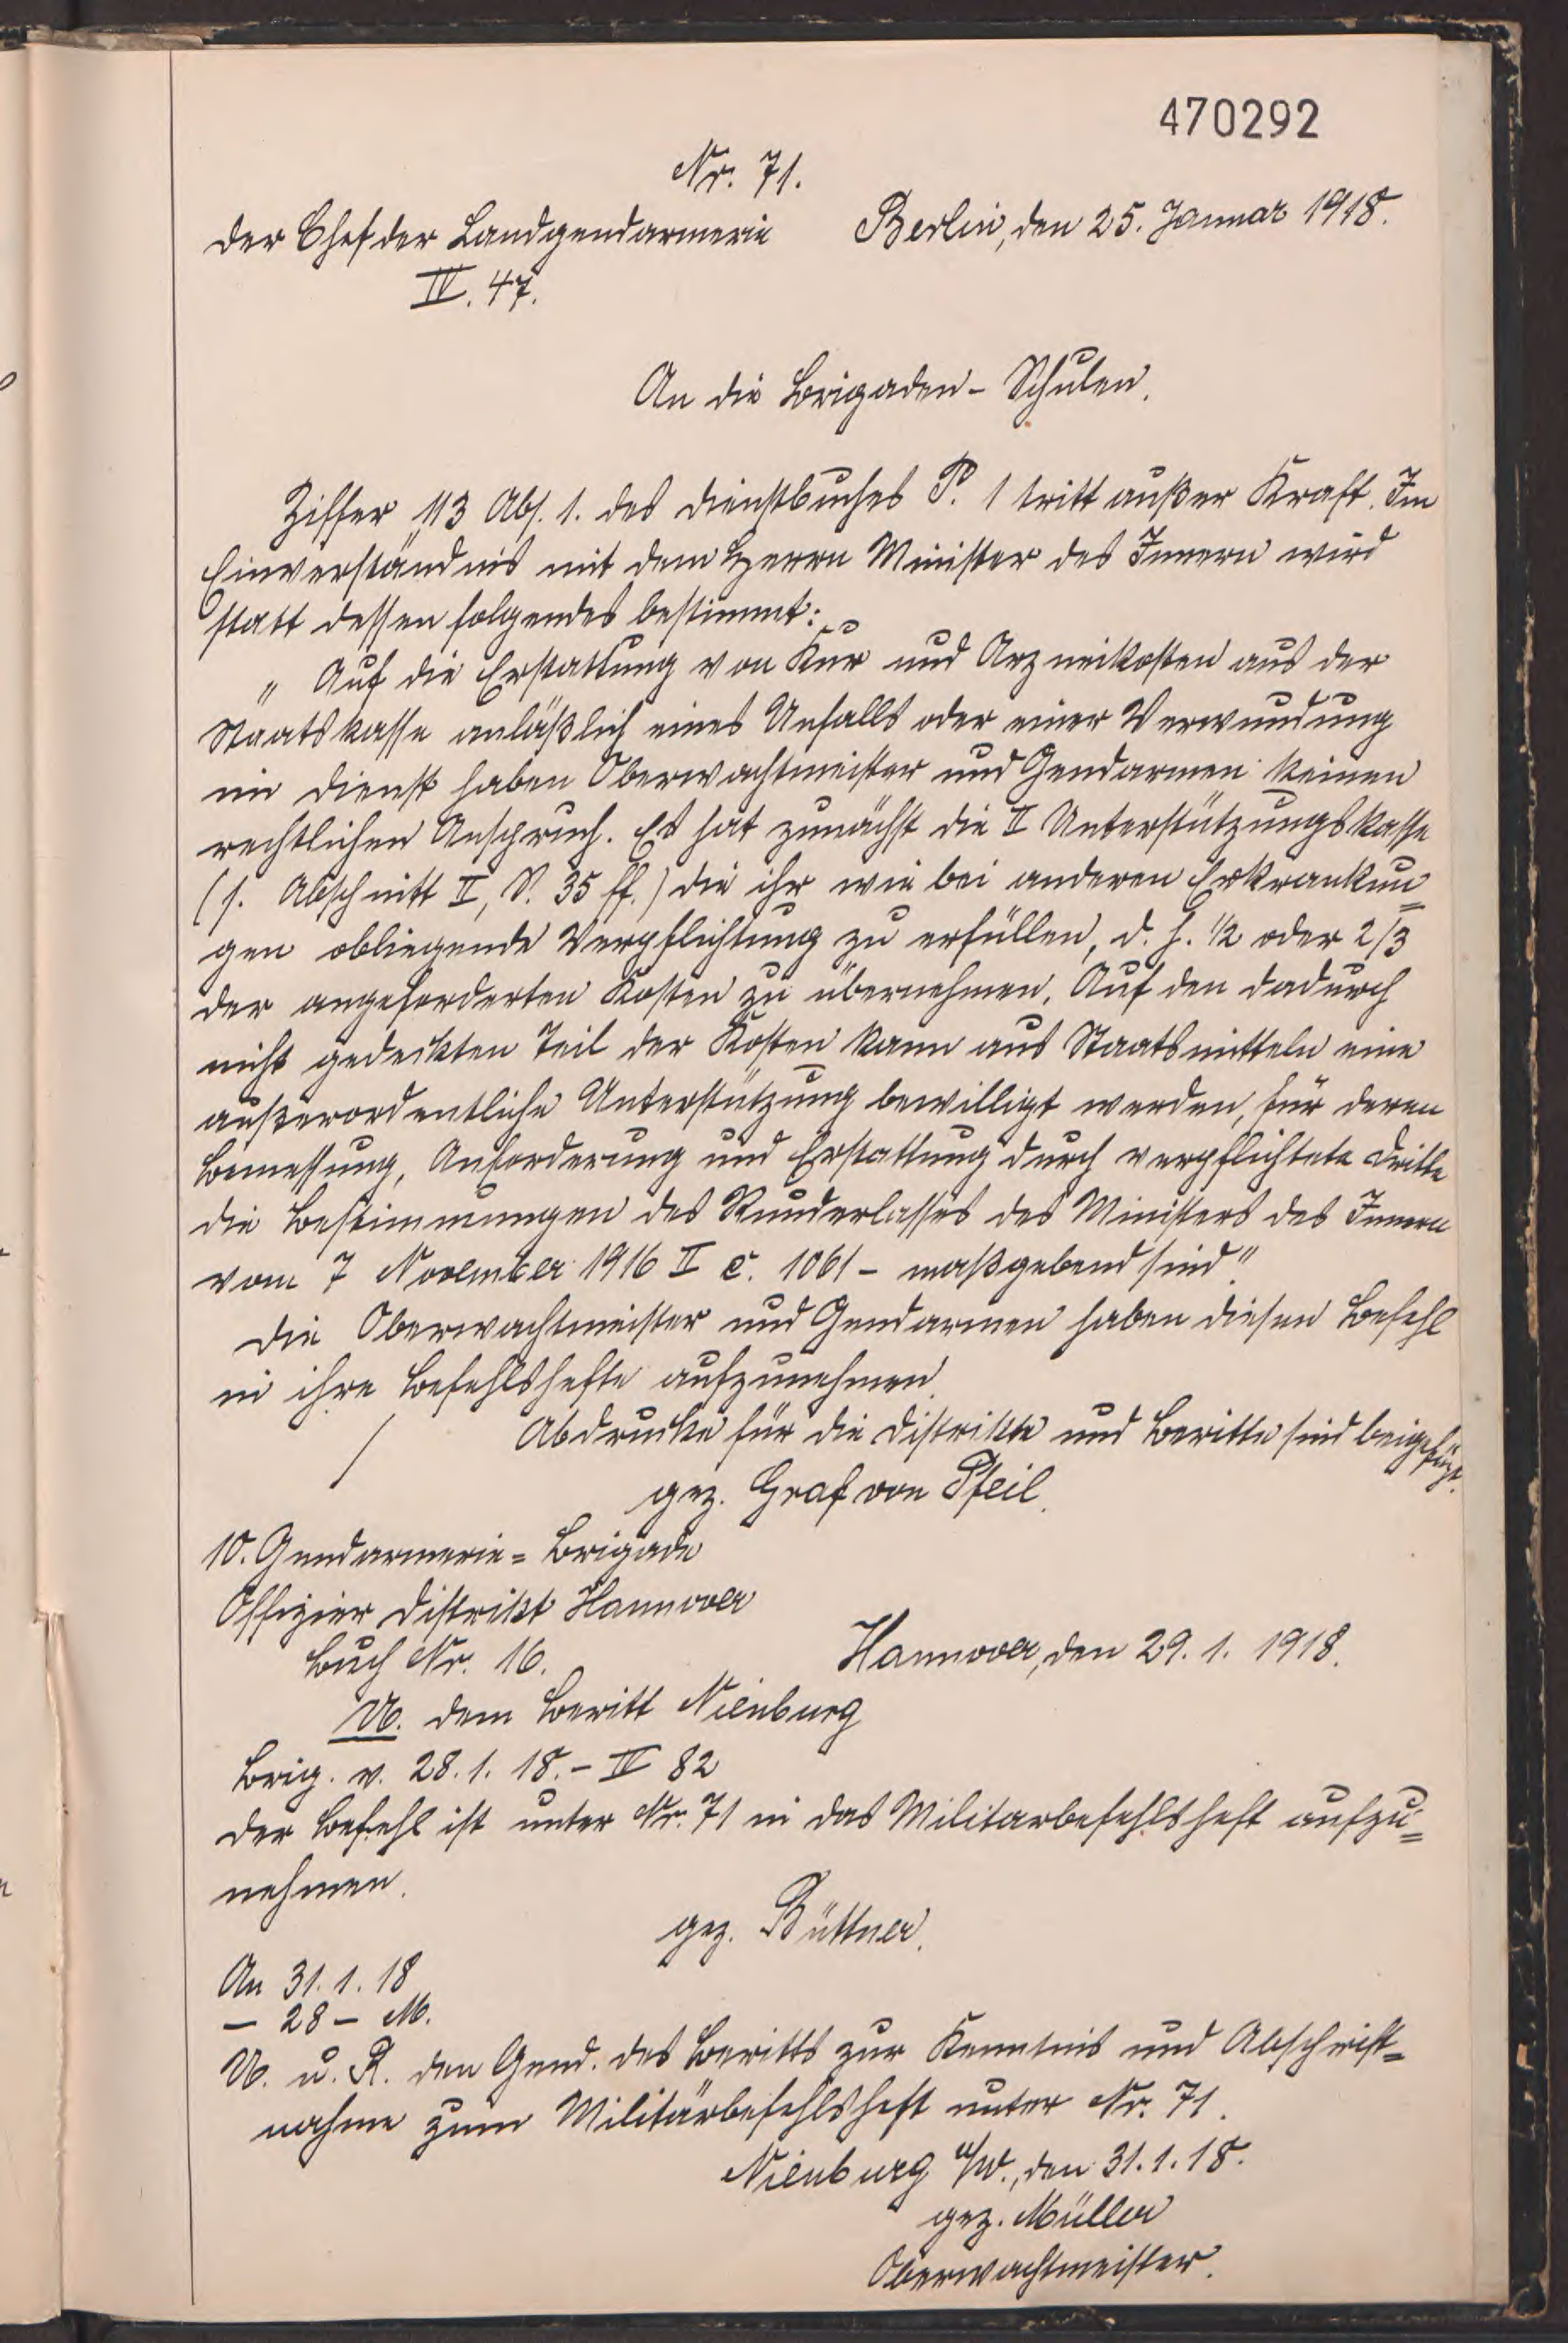 470292
Nr. 71.
Der Chef der Landgendarmerie Berlin, den 25. Januar 1918.
IV. 47.
An die Brigaden-Schulen.
Ziffer 113 Abs. 1. des Dienstbuches P. 1 tritt außer Kraft. Im
Einverständnis mit dem Herrn Minister des Innern wird
statt dessen folgendes bestimmt:
„Auf die Erstattung von Kur und Arzneikosten aus der
Staatskasse anläßlich eines Unfalls oder einer Verwundung
im Dienst haben Oberwachtmeister und Gendarmen keinen
rechtlichen Anspruch. Es hat zunächst die II Unterstützungskasse
(s. Abschnitt II, S. 35 ff.) die ihr wie bei anderen Erkrankun=
gen obliegende Verpflichtung zu erfüllen, d. h. 1/2 oder 2/3
der angeforderten Kosten zu übernehmen. Auf den dadurch
nicht gedeckten Teil der Kosten kann aus Staatsmitteln eine
außerordentliche Unterstützung bewilligt werden, für deren
Bemessung, Anforderung und Erstattung durch verpflichtete Dritte
die Bestimmungen des Runderlasses des Ministers des Innern
vom 7 November 1916 II c. 1061 - maßgebend sind."
Die Oberwachtmeister und Gendarmen haben diesen Befehl
in ihre Befehlshefte aufzunehmen.
/ Abdrucke für die Distrikte und Beritte sind beigefügt.
gez. Graf von Pfeil.
10. Gendarmerie=Brigade
Offizier Distrikt Hannover
Buch Nr. 16. Hannover, den 29. 1. 1918.
U. dem Beritt Nienburg
Brig. v. 28. 1. 18. - IV 82
Der Befehl ist unter Nr. 71 in das Militarbefehlsheft aufzu=
nehmen.
gez. Büttner.
An 31. 1. 18
- 28 - M.
U. u. R. den Gend. des Beritts zur Kenntnis und Abschrift=
nahme zum Militärbefehlsheft unter Nr. 71.
Nienburg a/W., den 31. 1. 18.
gez. Müller
Oberwachtmeister.